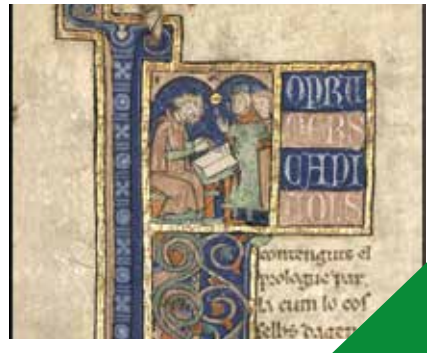 OPRI
MERS
CAPI
TOLS
contenguts el
prologue par
la cum lo cos
selhs dagen